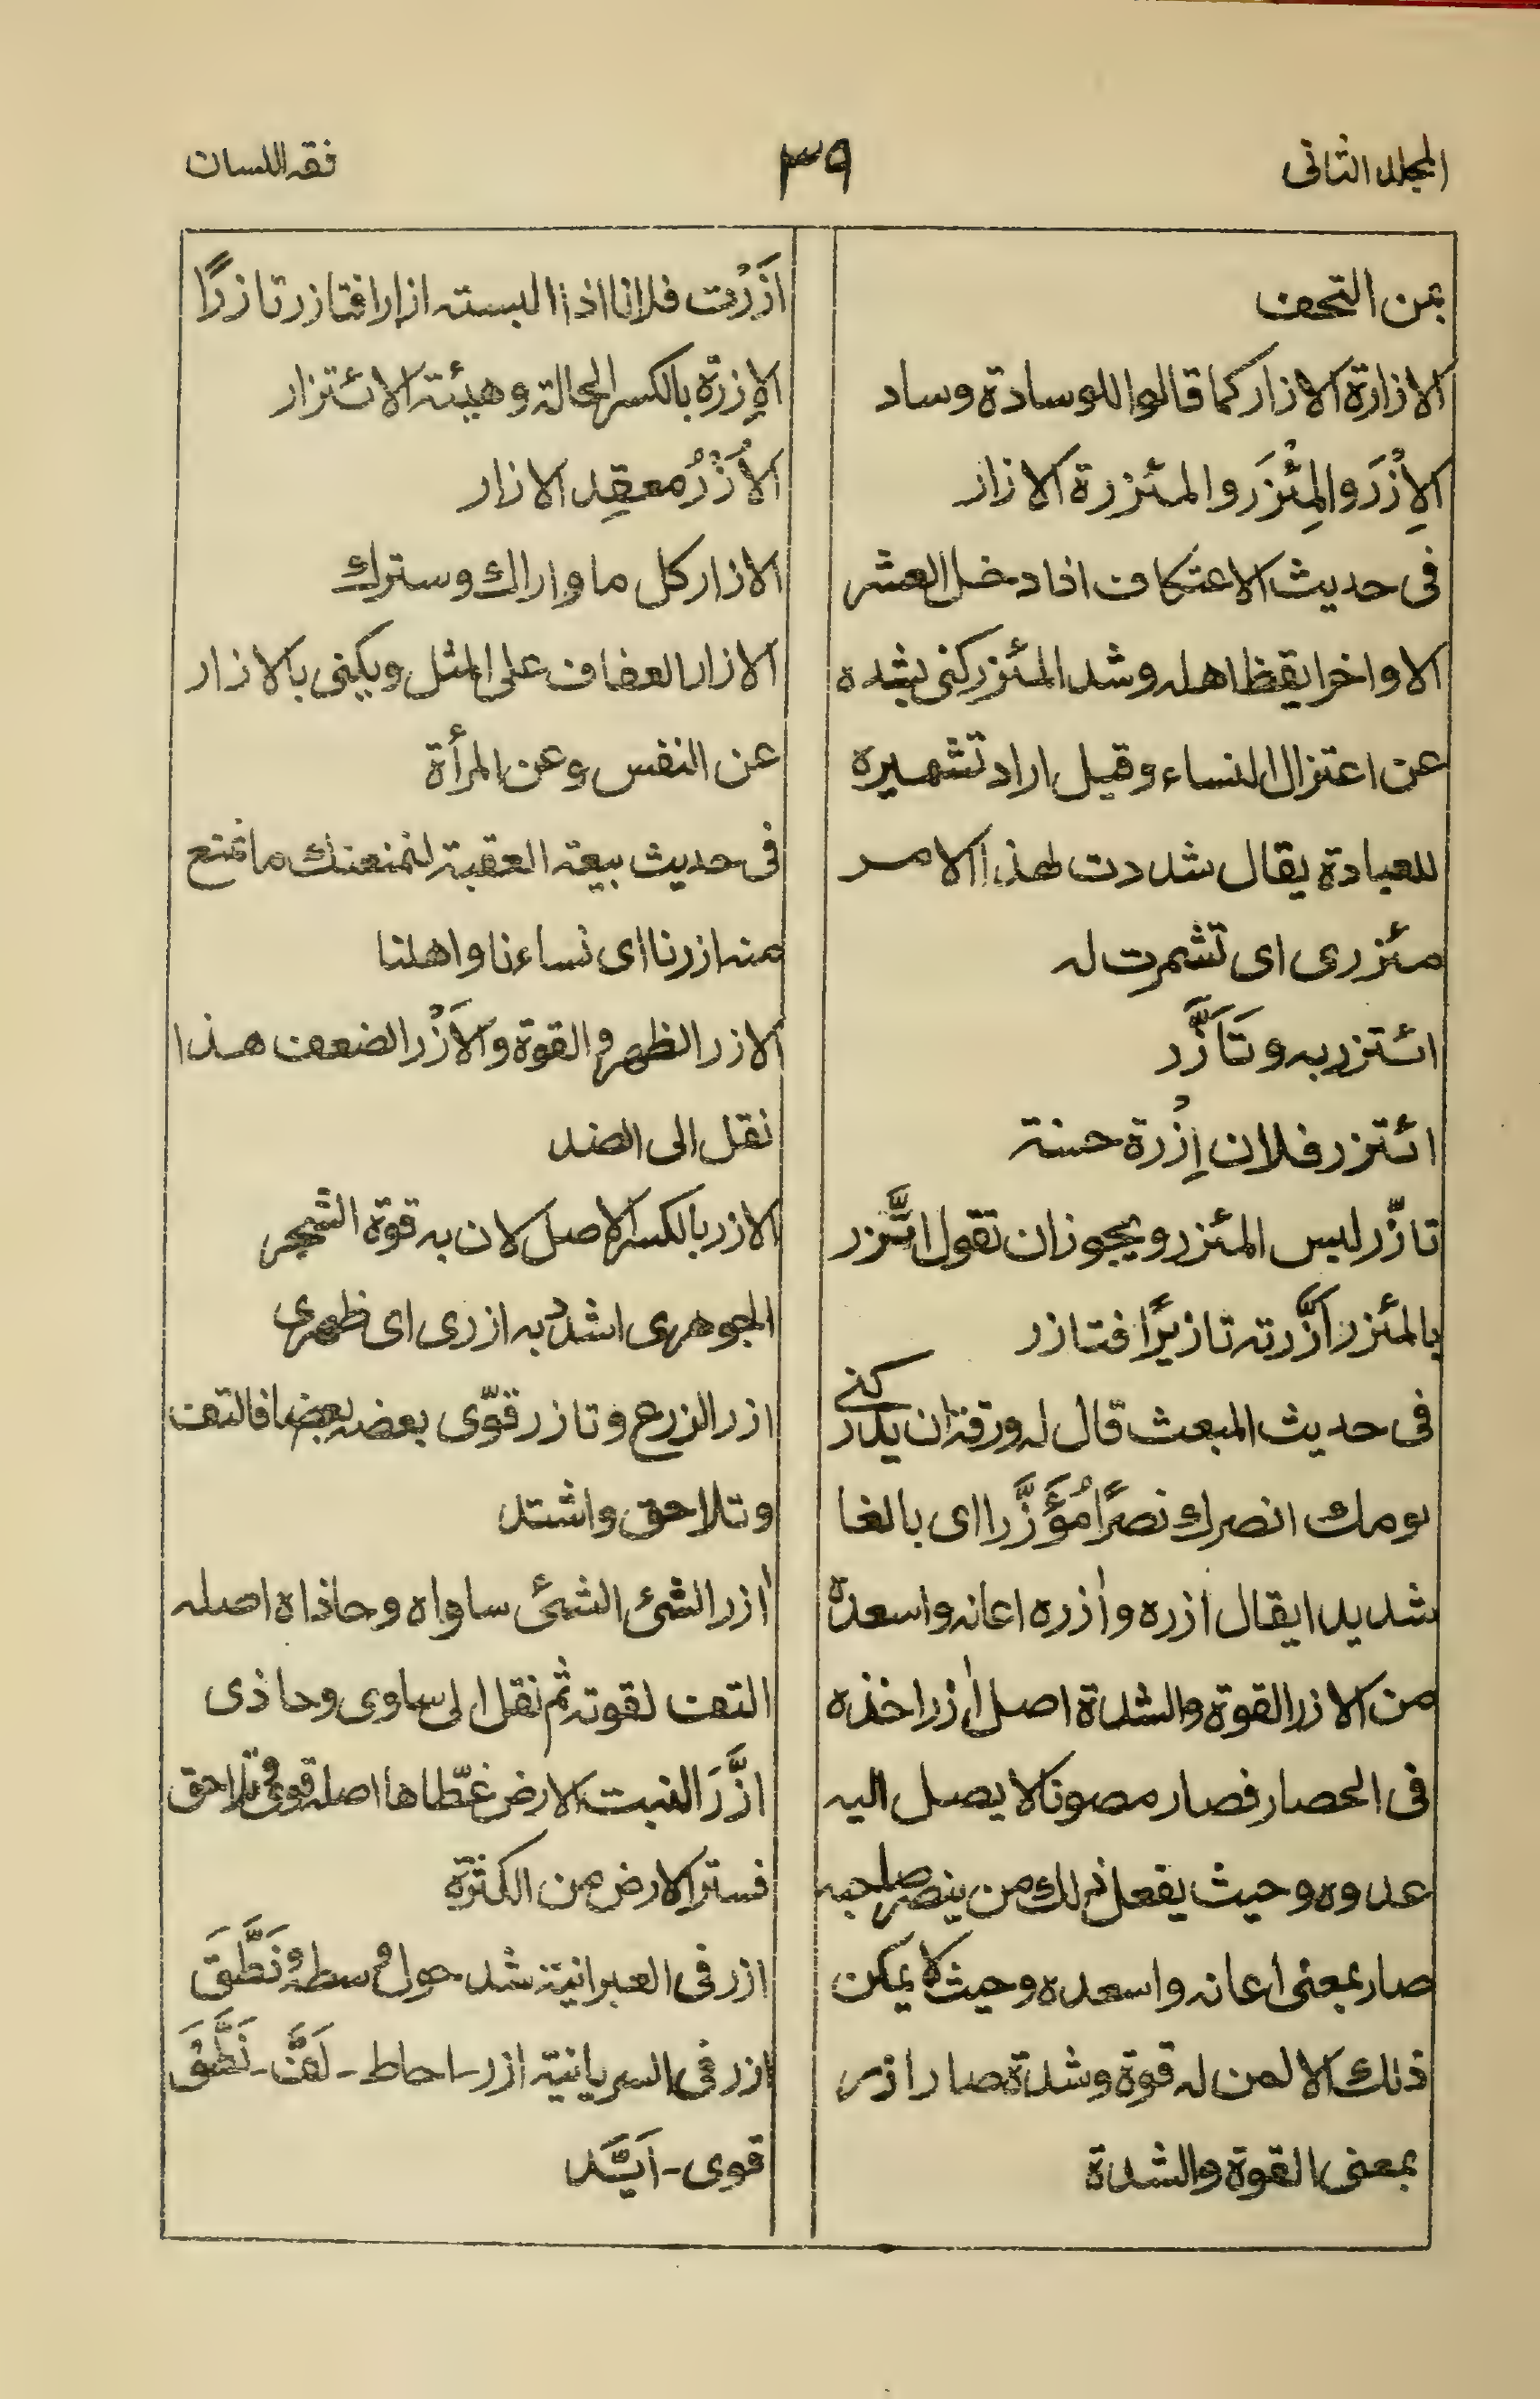 المجلد الثانی
۳۹
فقه اللسان
بمن التحف
الازارة الازار كما قالوا للوسادة وساد
الاِزْرَ والمِئْزَر والمئزرة الازار
فی حدیث الاعتكاف اذا دخل العشر
الاواخر ایقظ اهله وشد المئزر كنی بشده
عن اعتزال النساء وقیل اراد تشهیره
للعبادة یقال شددت لهذا الامر
مئزری ای تشمرت له
ائتزر به وتَأَزَّر
ائتزر فلان اِزْرة حسنة
تازّر لبس المئزر ویجوز ان تقول اتَّزر
بالمئزر اَزَّرته تازیرًا فتازر
فی حدیث المبعث قال له ورقة ان یدركنی
یومك انصرك نصرًا مُؤَزَّرا ای بالغا
شدیدا یقال ازره واٰزره اعانه واسعده
من الازر القوة والشدة اصل اٰزر اخذه
فی الحصار فصار مصونا لا یصل الیه
عدوه وحیث یفعل ذلك من ینصر صاحبه
صار بمعنی اعانه واسعده وحیث لا یمكن
ذلك الا لمن له قوة وشدة صار ازر
بمعنی القوة والشدة
اَزَّرْت فلانا اذا البسته ازارا فتازر تازرًا
الاِزرة بالكسر الحالة وهیئة الائتزار
الاُزْرُ معقِد الازار
الازار كل ما واراك وسترك
الازار العفاف علی المثل ویكنی بالازار
عن النفس وعن المرأة
فی حدیث بیعة العقبة لنمنعنك ما نمنع
منه ازرنا ای نساءنا واهلنا
الازر الظهر والقوة والاَزْر الضعف هذا
نقل الی الضد
الازر بالكسر الاصل لان به قوة الشجر
الجوهری اشدد به ازری ای ظهری
ازر الزرع وتازر قوّی بعضه بعضا فالتف
وتلاحق واشتد
اٰزر الشئ الشئ ساواه وحاذاه اصله
التف لقوته ثم نقل الی ساوی وحاذی
ازَّرَ النبت الارض غطّاها اصله قوی وتلاحق
فستر الارض من الكثرة
ازر فی العبرانیة شد حول وسطه ونَطَّقَ
ازر فی السریانیة ازر - احاط - لَفَّ - نَطَّقَ
قوی - اَیَّد